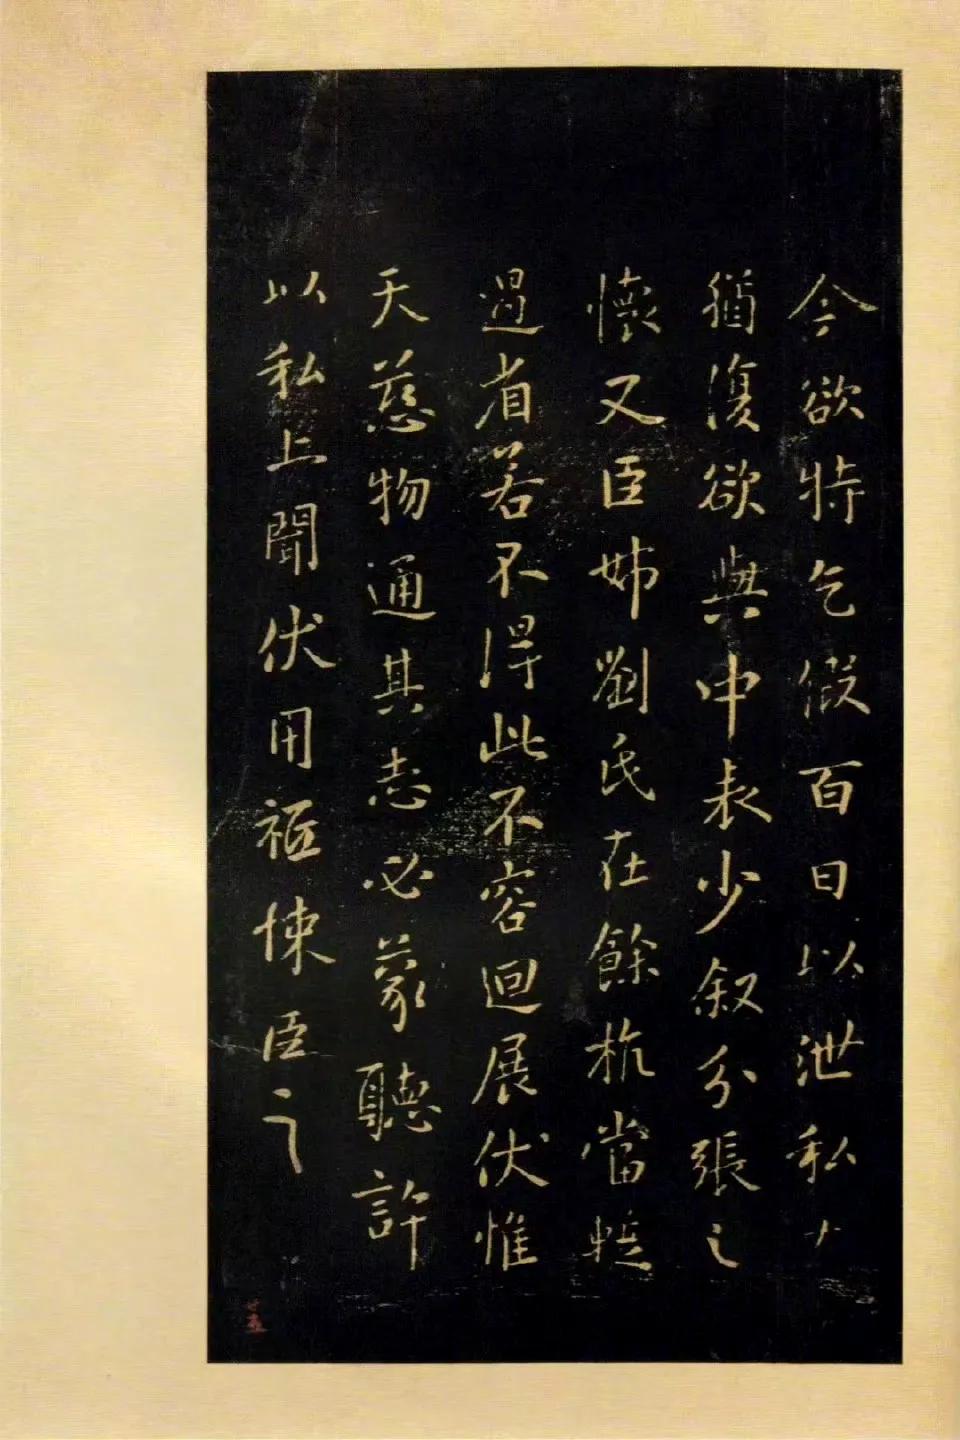 今欲特乞假百日以泄私
猶復欲與中表少叙分張之
懷又臣姊劉氏在餘杭當
過省若不得此不容迴展伏惟
天慈物通其志必蒙聽許
以私上聞伏用悚臣之